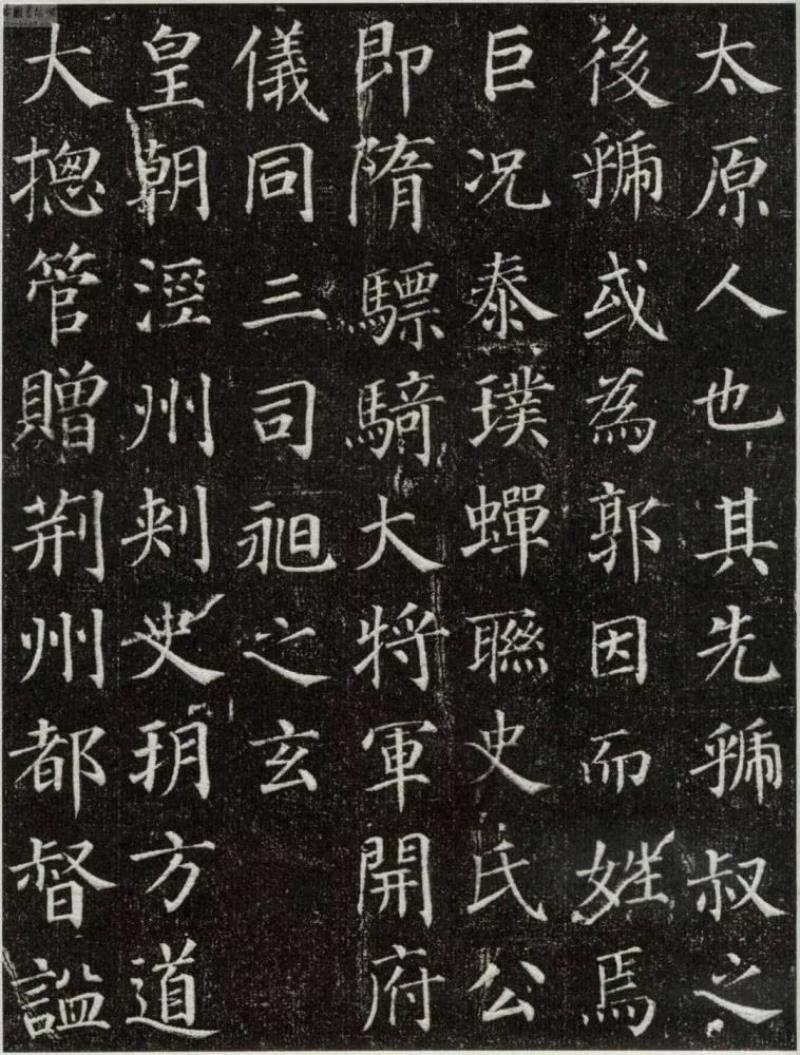 太原人也其先虢叔之
後虢或為郭因而姓焉
巨况泰璞蟬聯史氏公
即隋驃騎大將軍開府
儀同三司昶之玄
皇朝涇州刺史朔方道
大摠管贈荊州都督謚